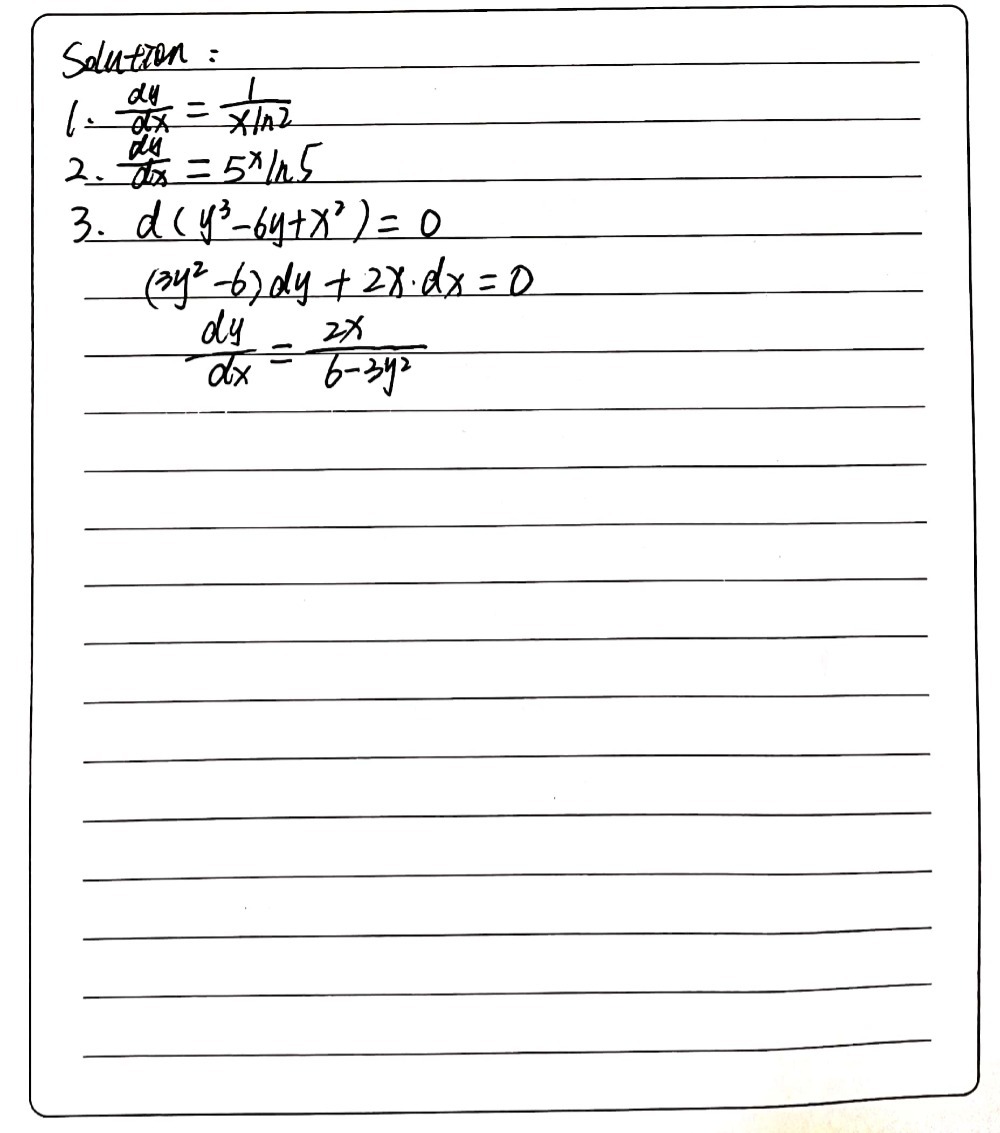 Solution :
1. dy/dx = 1/(x ln2)
2. dy/dx = 5^x ln5
3. d(y³-6y+x²)=0
(3y²-6)dy + 2x·dx=0
dy/dx = 2x/(6-3y²)